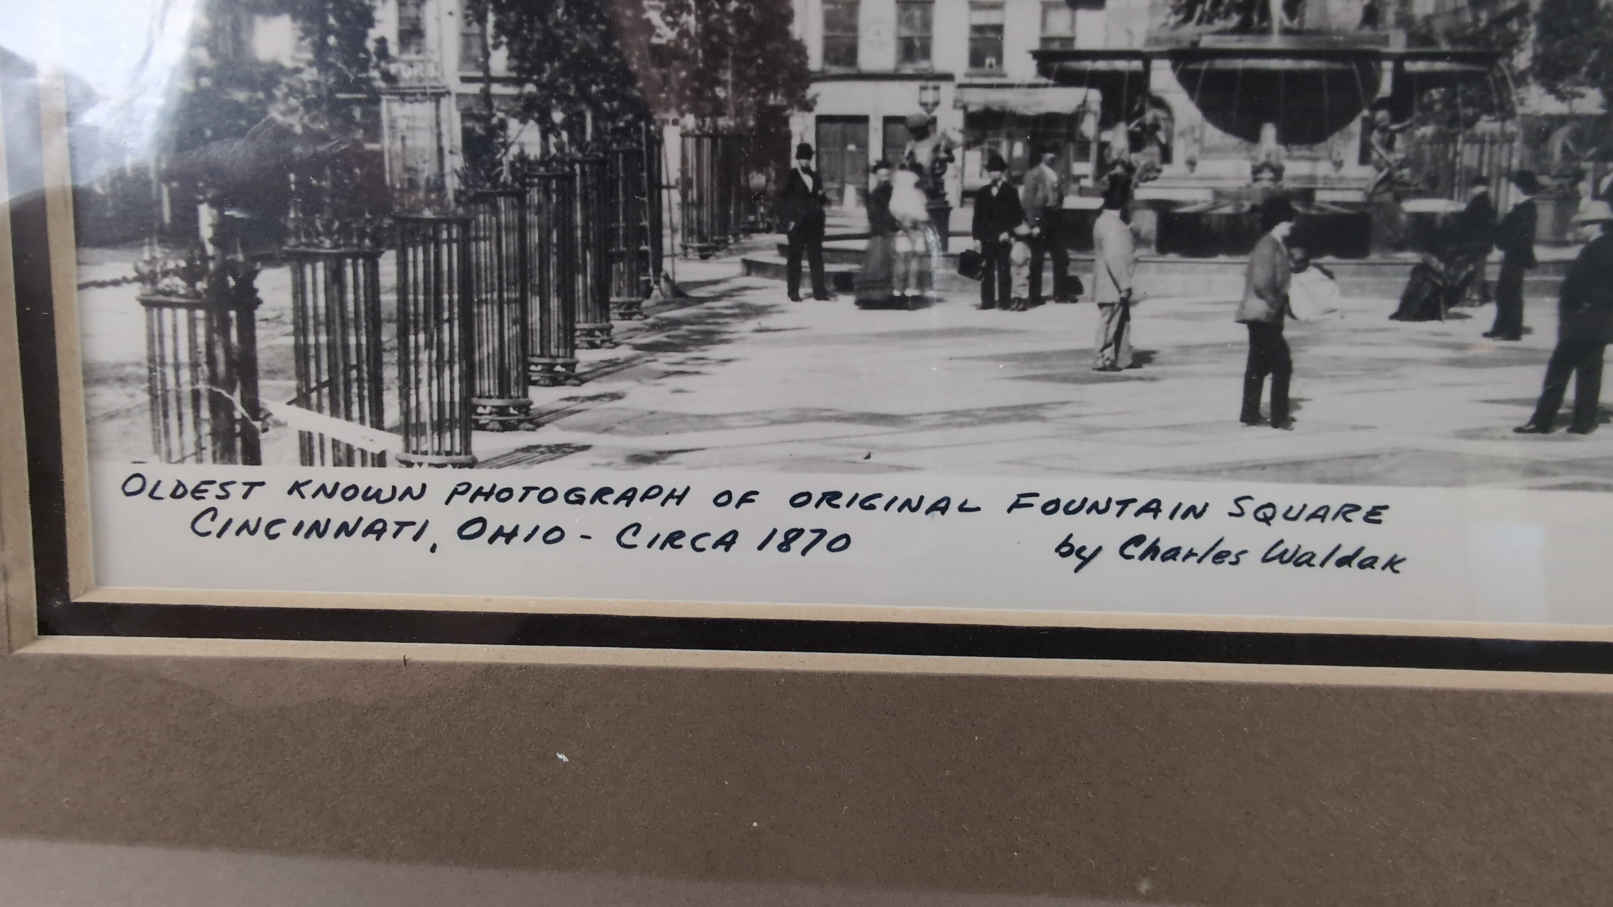 OLDEST KNOWN PHOTOGRAPH OF ORIGINAL FOUNTAIN SQUARE
CINCINNATI, OHIO - CIRCA 1870
by Charles Waldak